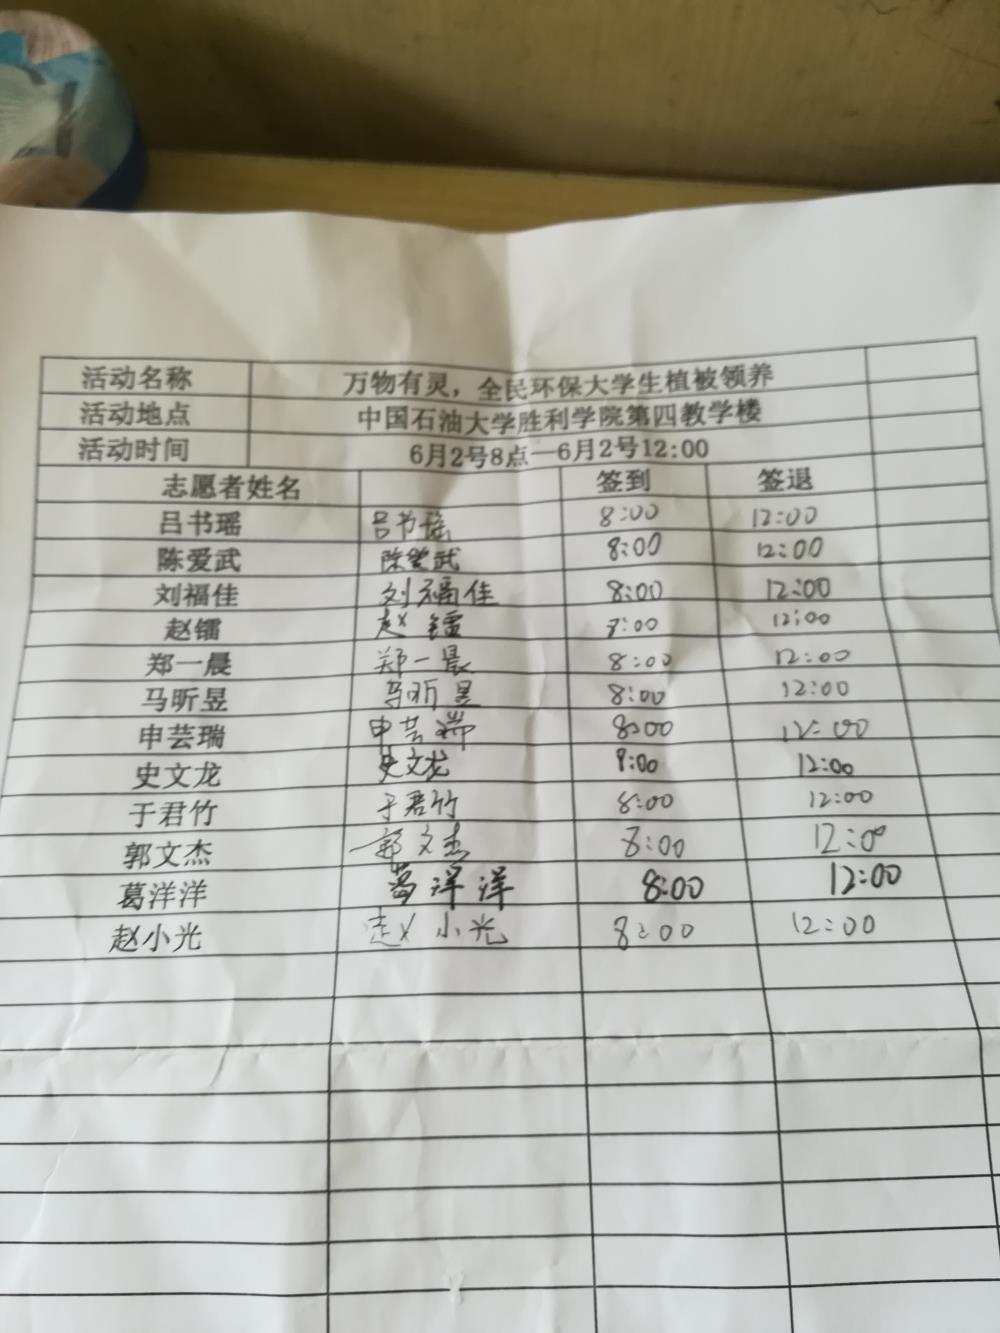 活动名称 万物有灵，全民环保大学生植被领养
活动地点 中国石油大学胜利学院第四教学楼
活动时间 6月2号8点—6月2号12:00
志愿者姓名 签到 签退
吕书瑶 吕书瑶 8:00 12:00
陈爱武 陈爱武 8:00 12:00
刘福佳 刘福佳 8:00 12:00
赵镭 赵镭 8:00 12:00
郑一晨 郑一晨 8:00 12:00
马昕昱 马昕昱 8:00 12:00
申芸瑞 申芸瑞 8:00 12:00
史文龙 史文龙 8:00 12:00
于君竹 于君竹 8:00 12:00
郭文杰 郭文杰 8:00 12:00
葛洋洋 葛洋洋 8:00 12:00
赵小光 赵小光 8:00 12:00